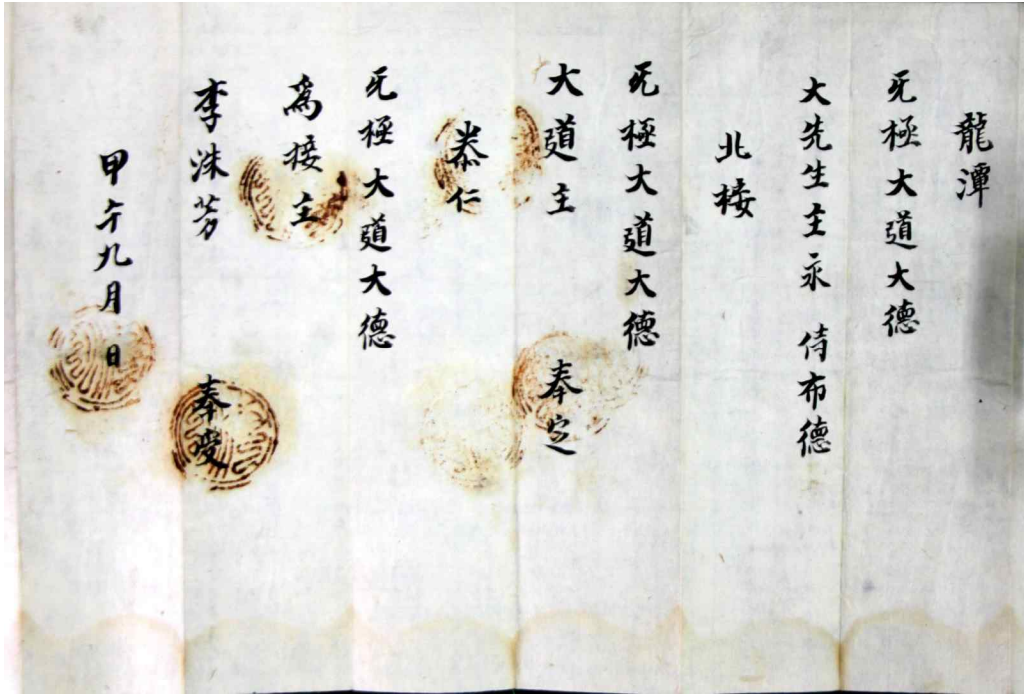 龍潭
无極大道大德
大先生主永　侍布德
北接
无極大道大德
大道主　奉定
泰仁
无極大道大德
為接主
李洙芳　奉受
甲午九月　日